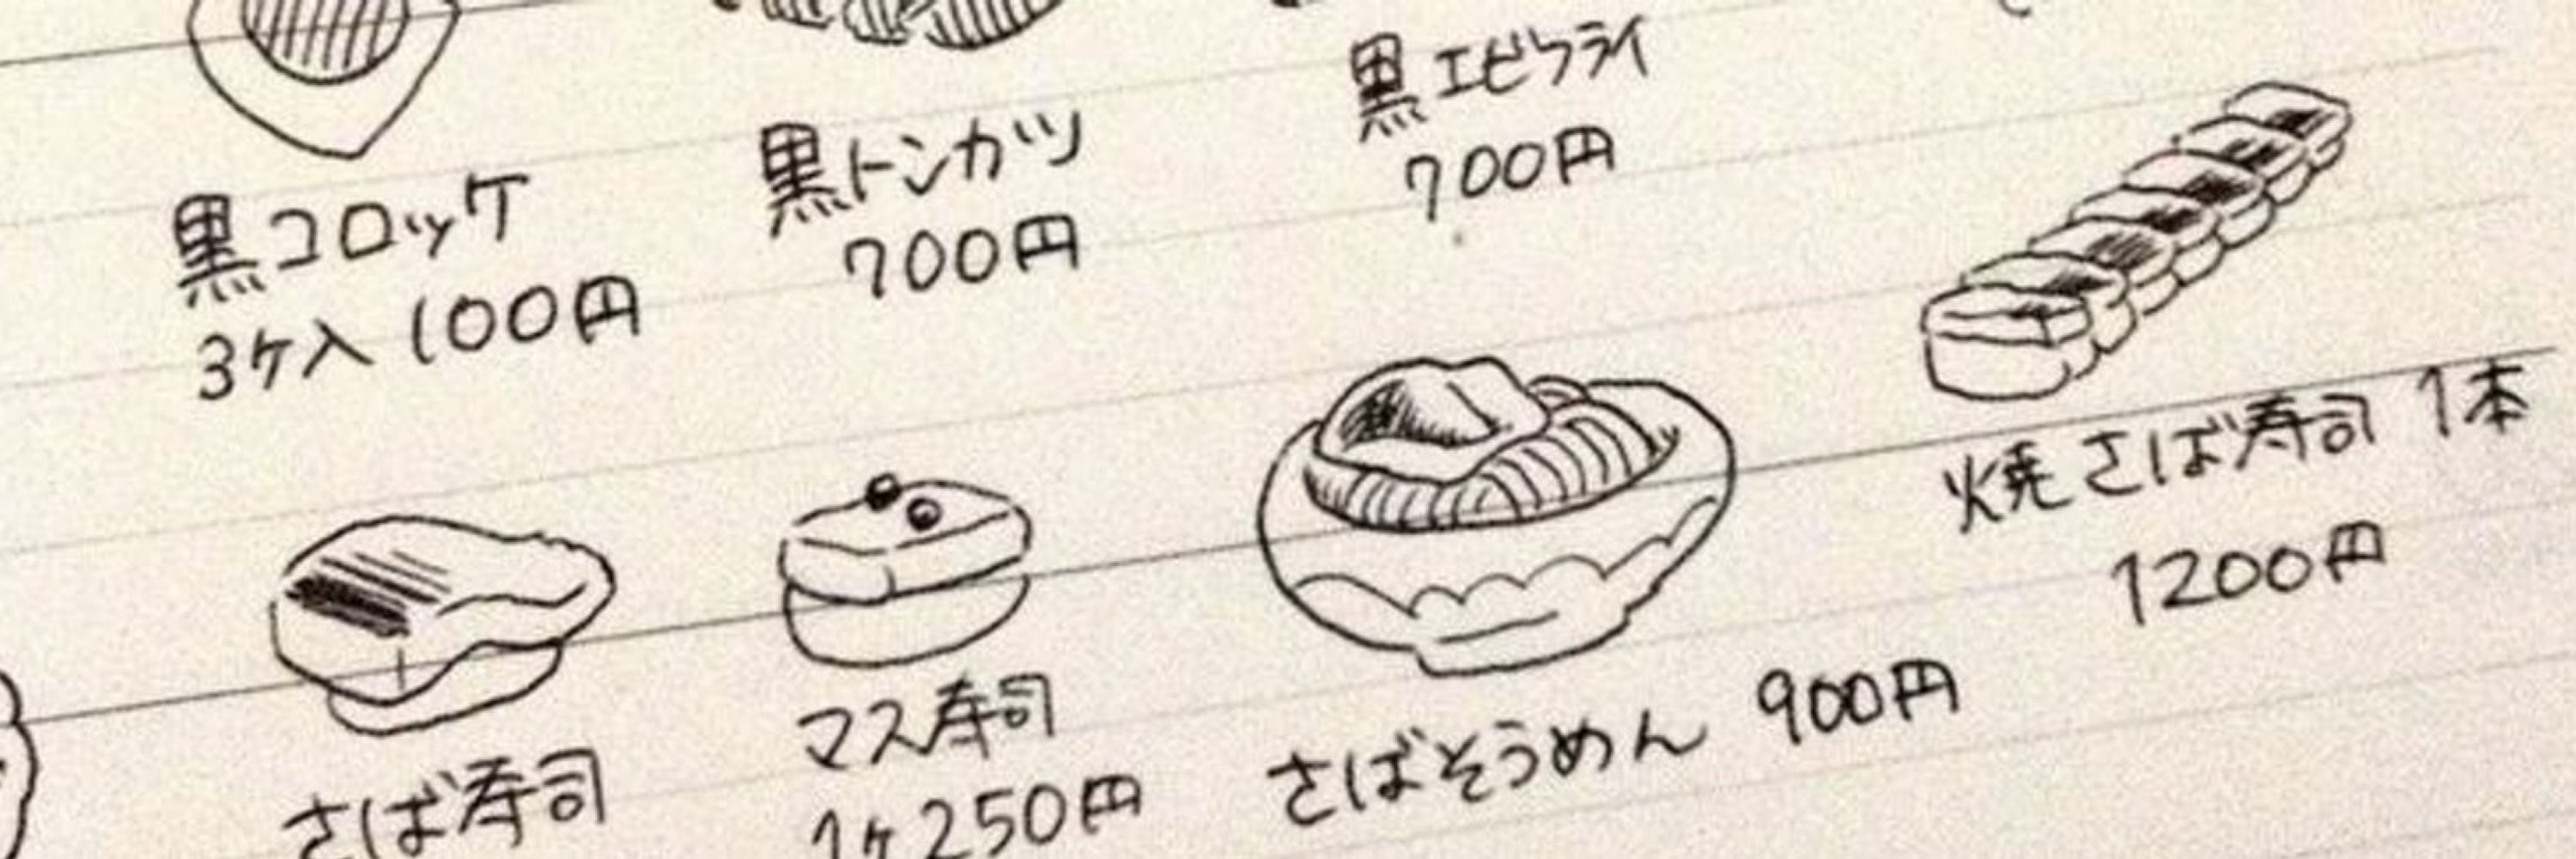 黒コロッケ
3ヶ入 100円
黒トンカツ
700円
黒エビフライ
700円
さば寿司
マス寿司
1ヶ250円
さばそうめん 900円
焼さば寿司 1本
1200円